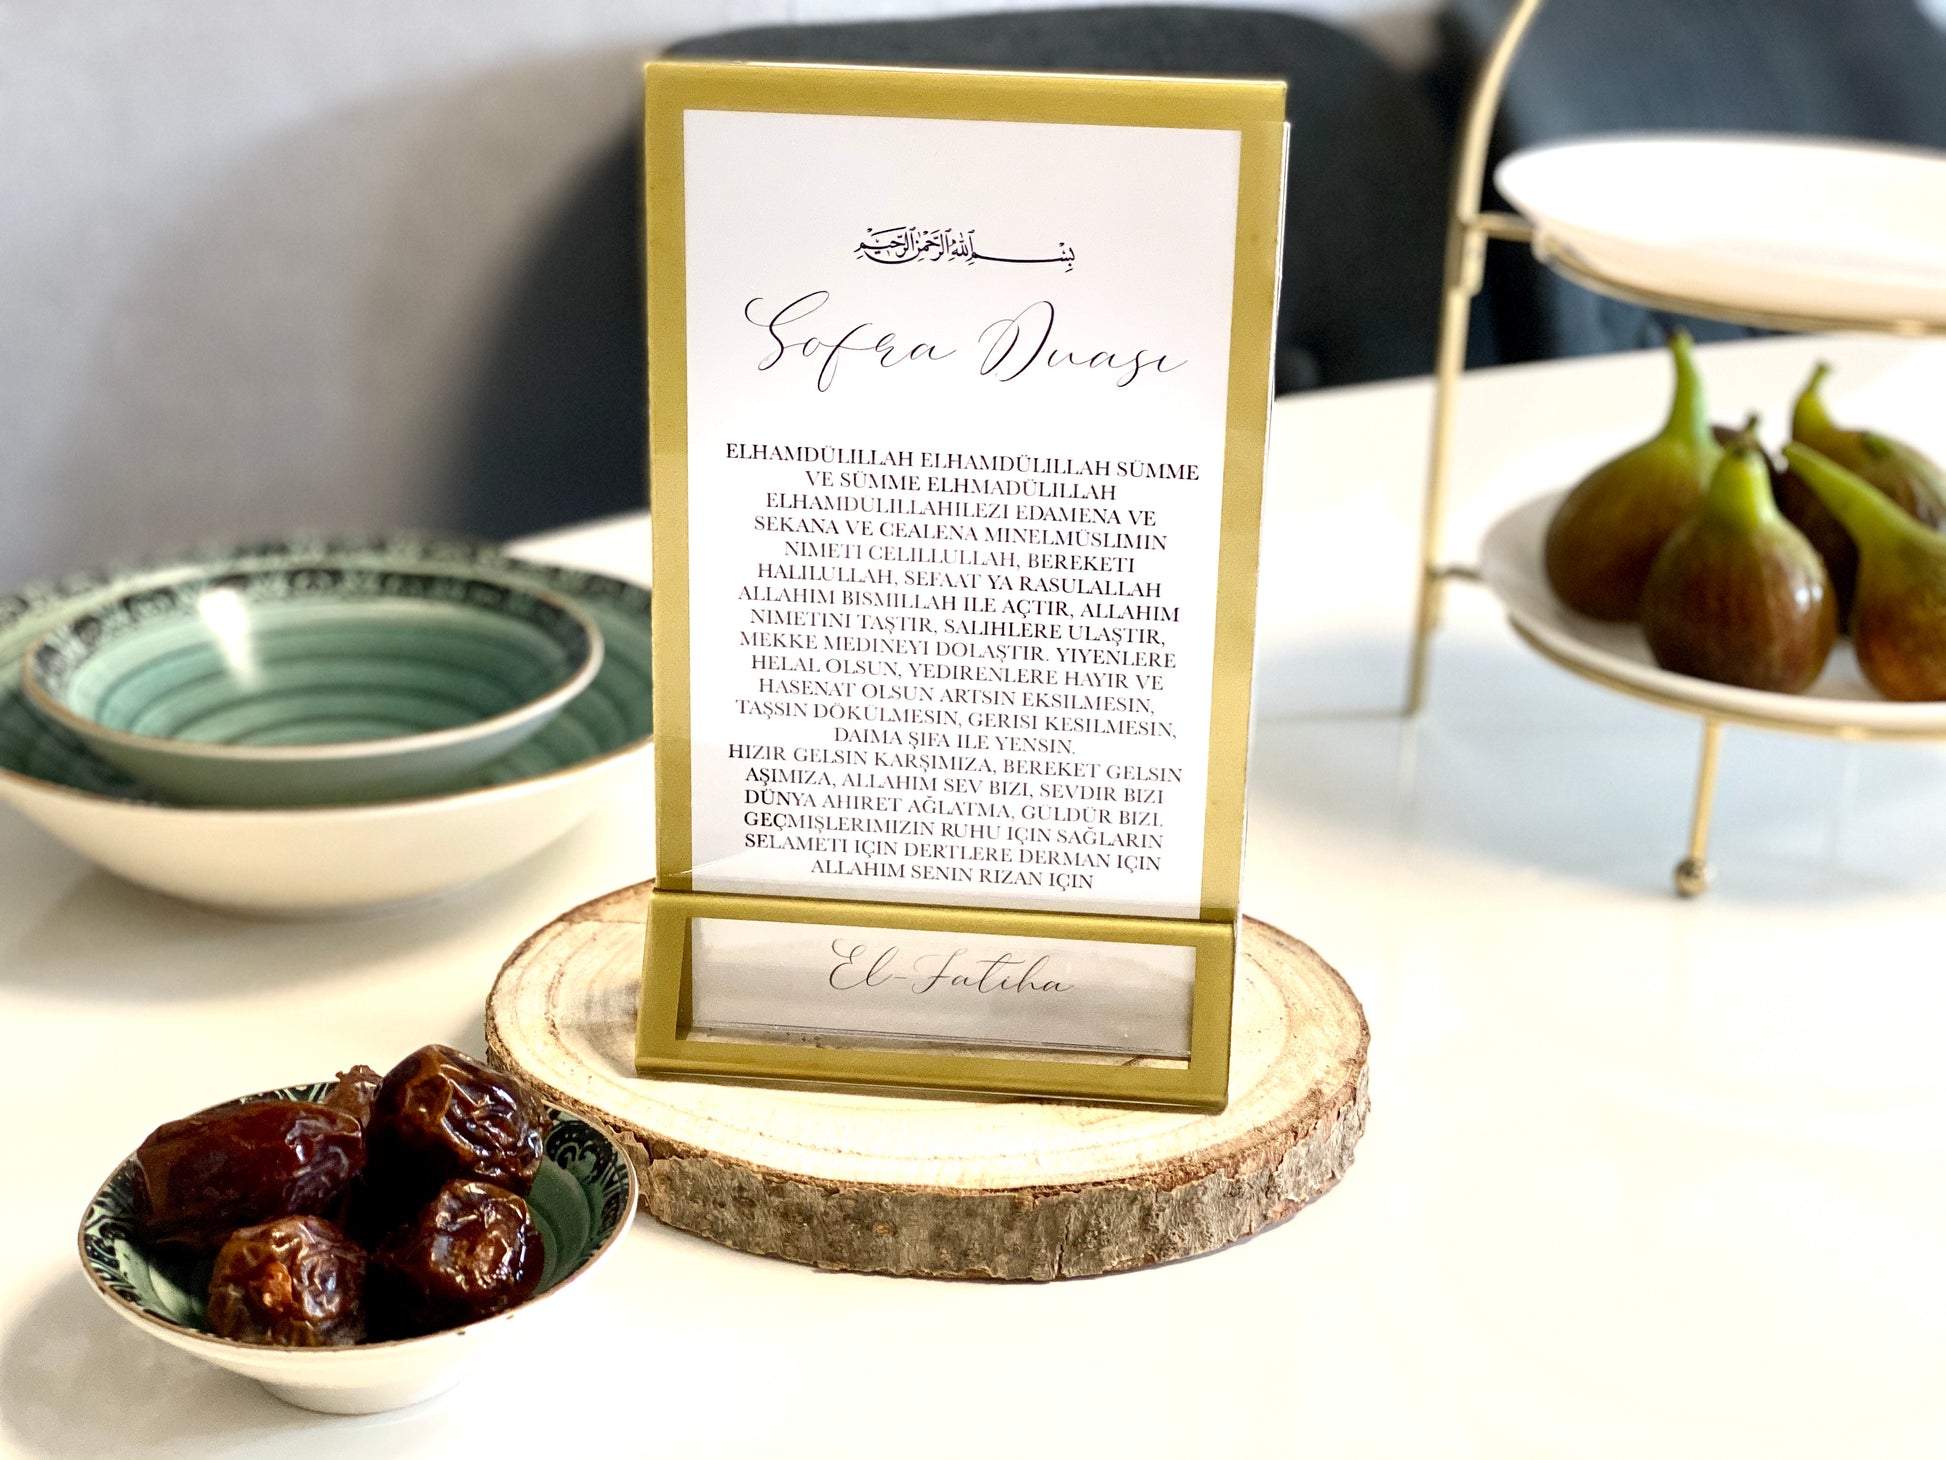 بِسْمِ اللهِ الرَّحْمٰنِ الرَّحِيمِ
Sofra Duası
ELHAMDÜLILLAH ELHAMDÜLILLAH SÜMME
VE SÜMME ELHMADÜLILLAH
ELHAMDÜLILLAHILEZI EDAMENA VE
SEKANA VE CEALENA MINELMÜSLIMIN
NIMETI CELILLULLAH, BEREKETI
HALILULLAH, SEFAAT YA RASULALLAH
ALLAHIM BISMILLAH ILE AÇTIR, ALLAHIM
NIMETINI TAŞTIR, SALIHLERE ULAŞTIR,
MEKKE MEDINEYI DOLAŞTIR. YIYENLERE
HELAL OLSUN, YEDIRENLERE HAYIR VE
HASENAT OLSUN ARTSIN EKSILMESIN,
TAŞSIN DÖKÜLMESIN, GERISI KESILMESIN,
DAIMA ŞIFA ILE YENSIN.
HIZIR GELSIN KARŞIMIZA, BEREKET GELSIN
AŞIMIZA, ALLAHIM SEV BIZI, SEVDIR BIZI
DÜNYA AHIRET AĞLATMA, GÜLDÜR BIZI.
GEÇMIŞLERIMIZIN RUHU IÇIN SAĞLARIN
SELAMETI IÇIN DERTLERE DERMAN IÇIN
ALLAHIM SENIN RIZAN IÇIN
El-Fatiha